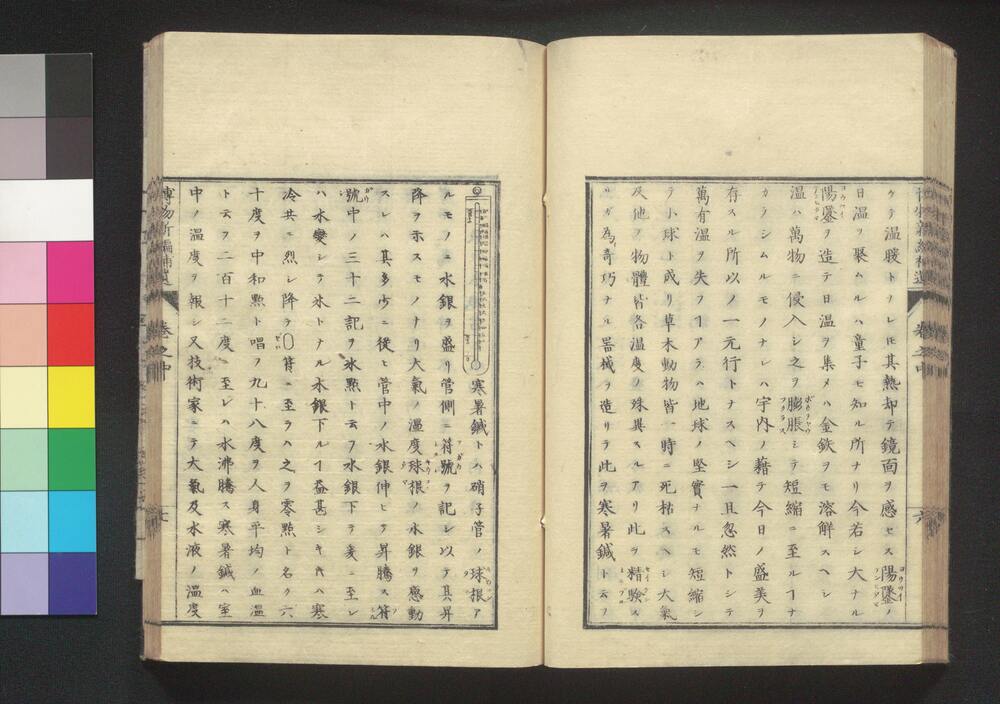 ケテ温暖トナレ𪜈其熱却テ鏡面ヲ感セス陽燧ノ
日温ヲ聚ムルハ童子モ知ル所ナリ今若シ大ナル
陽燧ヲ造テ日温ヲ集メハ金鉄ヲモ溶解スヘシ
温ハ萬物ニ侵入シ之ヲ膨脹シテ短縮ニ至ルヿナ
カラシムルモノナレハ宇内ノ藉テ今日ノ盛美ヲ
存スル所以ノ一元行トナスヘシ一旦忽然トシテ
萬有温ヲ失フヿアラハ地球ノ堅實ナルモ短縮シ
テ小球ト成リ草木動物皆一時ニ死枯スヘシ大氣
及他ノ物體皆各温度ノ殊異スルアリ此ヲ精驗ス
ルガ為奇巧ナル器械ヲ造リテ此ヲ寒暑鍼ト云フ
六
寒暑鍼トハ硝子管ノ球根ア
ルモノニ水銀ヲ盛リ管側ニ符號ヲ記シ以テ其昇
降ヲ示スモノナリ大氣ノ温度球根ノ水銀ニ感動
スレハ其多少ニ從ヒ管中ノ水銀伸ヒテ昇騰ス符
號中ノ三十二記ヲ氷點ト云フ水銀下テ爰ニ至レ
ハ水變シテ氷トナル水銀下ルヿ益甚シキ𪜈ハ寒
冷共ニ烈シ降テ〇符ニ至ラハ之ヲ零點ト名ク六
十度ヲ中和點ト唱ヲ九十八度ヲ人身平均ノ血温
ト云フ二百十二度ニ至レハ水沸騰ス寒暑鍼ハ室
中ノ温度ヲ報シ又技術家ニテ大氣及水液ノ温度
博物新編補遺 卷之中 七